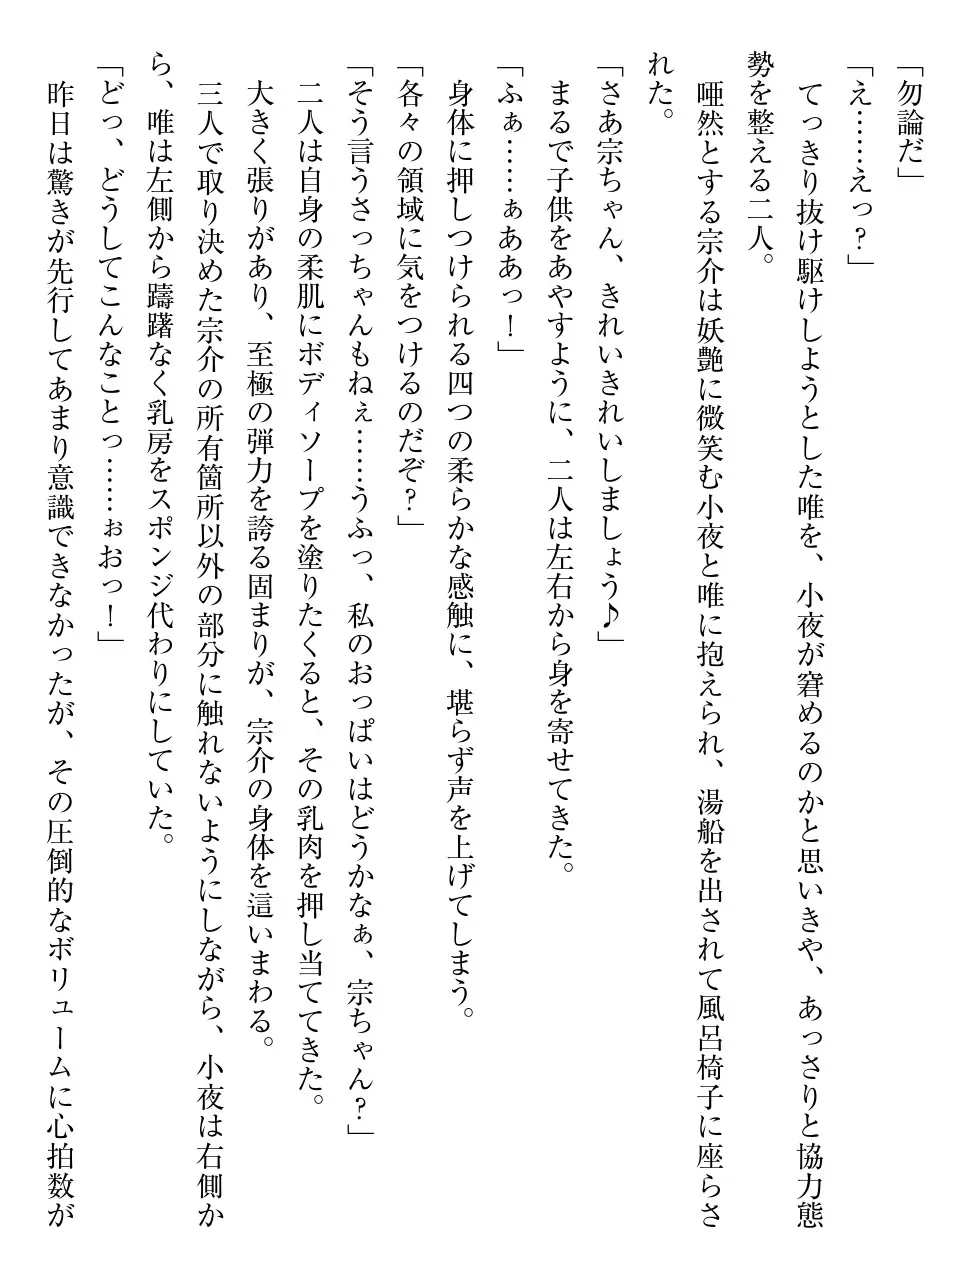 「勿論だ」
「え……えっ？」
　てっきり抜け駆けしようとした唯を、小夜が窘めるのかと思いきや、あっさりと協力態
勢を整える二人。
　唖然とする宗介は妖艶に微笑む小夜と唯に抱えられ、湯船を出されて風呂椅子に座らさ
れた。
「さあ宗ちゃん、きれいきれいしましょう♪」
　まるで子供をあやすように、二人は左右から身を寄せてきた。
「ふぁ……ぁああっ！」
　身体に押しつけられる四つの柔らかな感触に、堪らず声を上げてしまう。
「各々の領域に気をつけるのだぞ？」
「そう言うさっちゃんもねぇ……うふっ、私のおっぱいはどうかなぁ、宗ちゃん？」
　二人は自身の柔肌にボディソープを塗りたくると、その乳肉を押し当ててきた。
　大きく張りがあり、至極の弾力を誇る固まりが、宗介の身体を這いまわる。
　三人で取り決めた宗介の所有箇所以外の部分に触れないようにしながら、小夜は右側か
ら、唯は左側から躊躇なく乳房をスポンジ代わりにしていた。
「どっ、どうしてこんなことっ……ぉおっ！」
　昨日は驚きが先行してあまり意識できなかったが、その圧倒的なボリュームに心拍数が